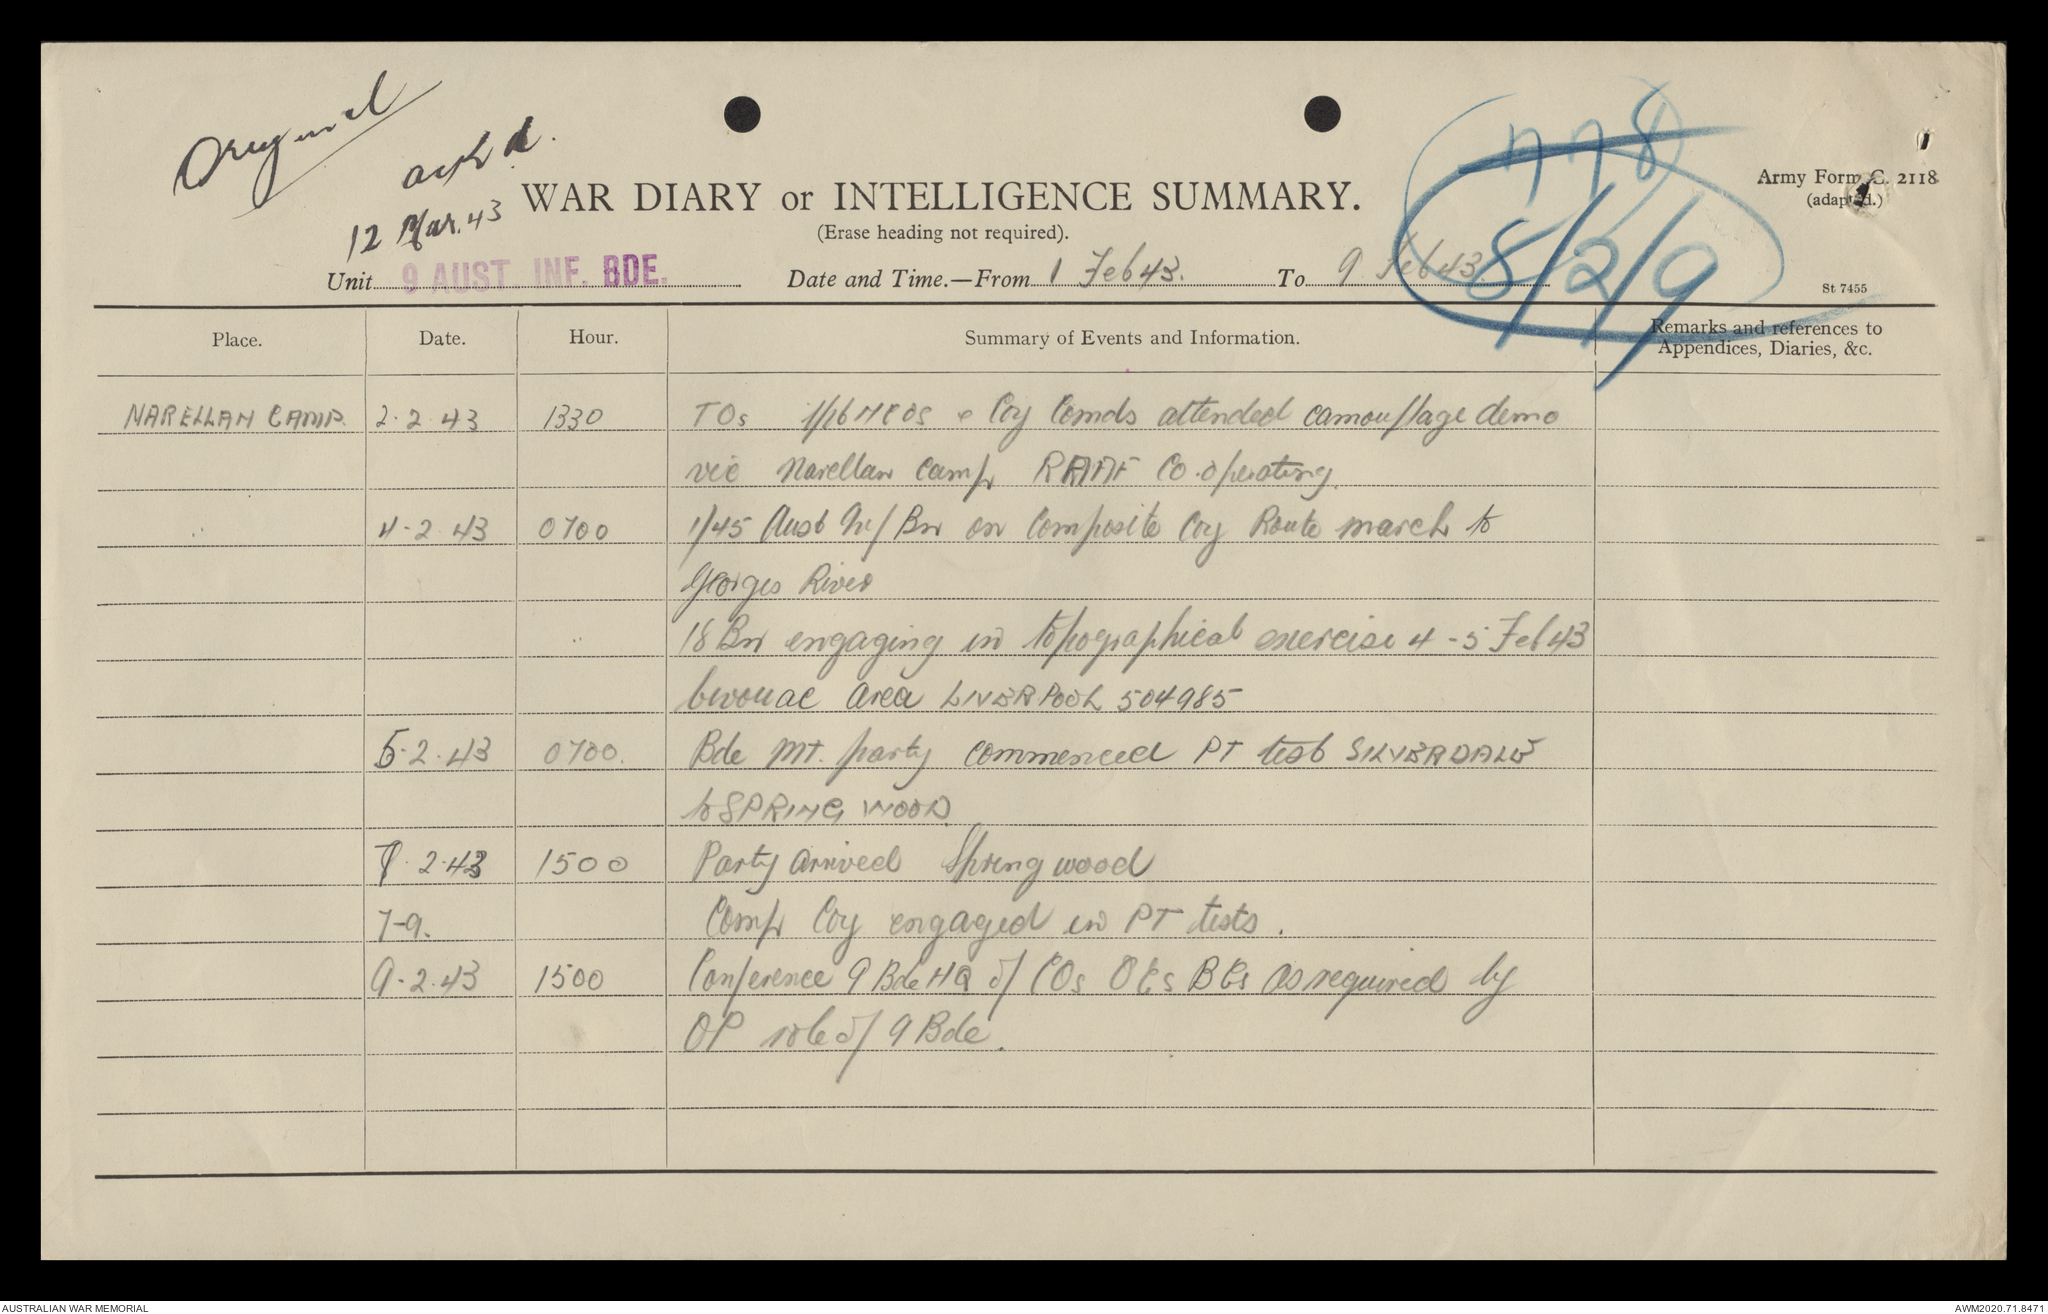 Original
ackd.
12 Mar. 43
778
8/2/9
Army Form C. 2118
(adapted.)
WAR DIARY or INTELLIGENCE SUMMARY.
(Erase heading not required).
Unit 9 AUST. INF. BDE. Date and Time.—From 1 Feb 43. To 9 Feb 43
St 7455
Place. Date. Hour. Summary of Events and Information. Remarks and references to
Appendices, Diaries, &c.
NARELLAN CAMP. 2.2.43 1330 Coy Comds attended camouflage demo
vic Narellan Camp RAAF Co-operating.
4.2.43 0700 1/45 Aust Inf Bn on Composite Coy Route march to
Georges River
18 Bn engaging in topographical exercise 4-5 Feb 43
bivouac area LIVERPOOL 504985
5.2.43 0700. Bde Mt. party commenced PT test SILVERDALE
to SPRING WOOD
7.2.43 1500 Party arrived Spring wood
7-9. Comp Coy engaged in PT tests.
9.2.43 1500 Conference 9 Bde HQ of COs OCs as required by
OP role of 9 Bde.
AUSTRALIAN WAR MEMORIAL
AWM2020.71.8471